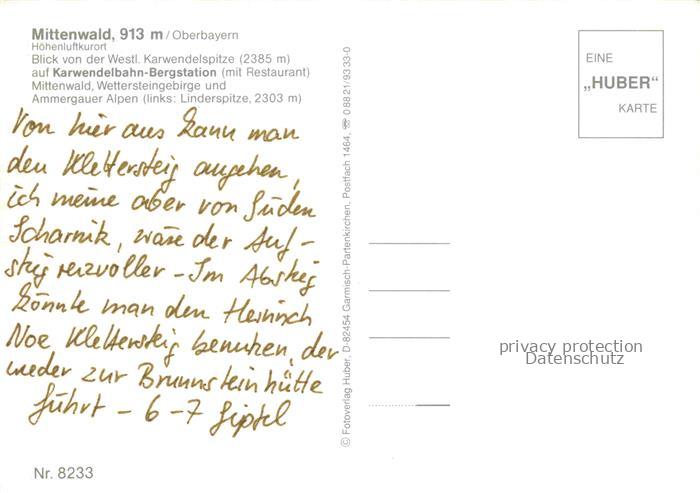 Mittenwald, 913 m / Oberbayern
Höhenluftkurort
Blick von der Westl. Karwendelspitze (2385 m)
auf Karwendelbahn-Bergstation (mit Restaurant)
Mittenwald, Wettersteingebirge und
Ammergauer Alpen (links: Linderspitze, 2303 m)
Von hier aus kann man
den Klettersteig angehen,
ich meine aber von Süden
Scharnik, wäre der Auf-
stieg reizvoller – Im Abstieg
könnte man den Heinrich
Noe Klettersteig benutzen, der
wieder zur Brunnsteinhütte
führt – 6 – 7 Gipfel
Nr. 8233
© Fotoverlag Huber, D-82454 Garmisch-Partenkirchen, Postfach 1464, ☏ 0 88 21/93 33-0
EINE
„HUBER“
KARTE
privacy protection
Datenschutz